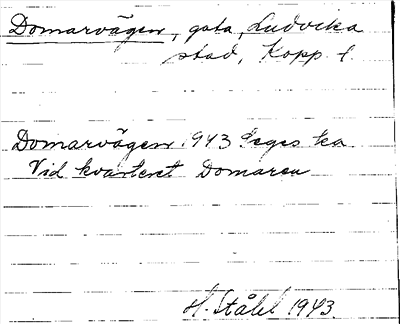 Domarvägen, gata, Ludvika
stad, Kopp. l.
Domarvägen 1943 ka
Vid kvarteret Domaren
H. Ståhl 1943.